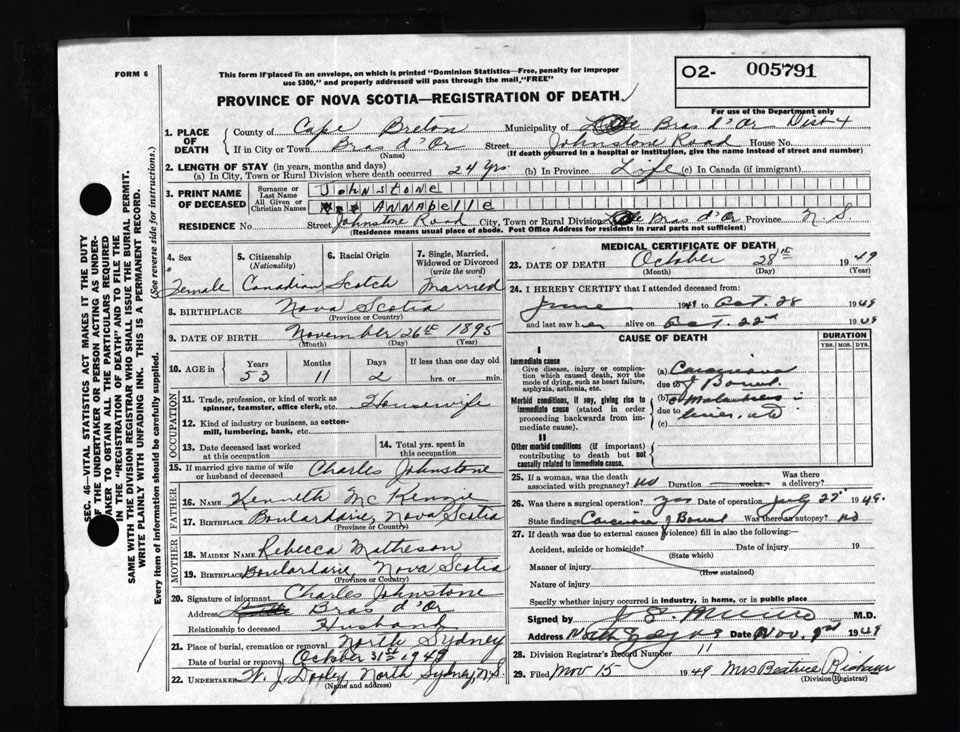 FORM 6
This form if placed in an envelope, on which is printed "Dominion Statistics—Free, penalty for improper
use $300," and properly addressed will pass through the mail, "FREE"
O2- 005791
For use of the Department only
PROVINCE OF NOVA SCOTIA—REGISTRATION OF DEATH
1. PLACE OF DEATH { County of Cape Breton Municipality of Bras d'Or Dist 4
If in City or Town Bras d'Or (Name) Street Johnstone Road House No.
(If death occurred in a hospital or institution, give the name instead of street and number)
2. LENGTH OF STAY (in years, months and days)
(a) In City, Town or Rural Division where death occurred 24 yrs. (b) In Province Life (c) In Canada (if immigrant)
3. PRINT NAME OF DECEASED { Surname or Last Name JOHNSTONE
All Given or Christian Names ANNABELLE
RESIDENCE No. Street Johnstone Road City, Town or Rural Division Bras d'Or Province N.S.
(Residence means usual place of abode. Post Office Address for residents in rural parts not sufficient)
4. Sex Female
5. Citizenship (Nationality) Canadian
6. Racial Origin Scotch
7. Single, Married, Widowed or Divorced (write the word) Married
8. BIRTHPLACE Nova Scotia
(Province or Country)
9. DATE OF BIRTH November 26th 1895
(Month) (Day) (Year)
10. AGE in { Years 53 Months 11 Days 2 If less than one day old hrs. or min.
OCCUPATION
11. Trade, profession, or kind of work as spinner, teamster, office clerk, etc. Housewife
12. Kind of industry or business, as cotton-mill, lumbering, bank, etc.
13. Date deceased last worked at this occupation
14. Total yrs. spent in this occupation
15. If married give name of wife or husband of deceased Charles Johnstone
FATHER
16. NAME Kenneth McKenzie
17. BIRTHPLACE Boulardarie, Nova Scotia
(Province or Country)
MOTHER
18. MAIDEN NAME Rebecca Matheson
19. BIRTHPLACE Boulardarie, Nova Scotia
(Province or Country)
20. Signature of informant Charles Johnstone
Address Bras d'Or
Relationship to deceased Husband
21. Place of burial, cremation or removal North Sydney
Date of burial or removal October 31st 1949
22. UNDERTAKER W. J. Dooley North Sydney, N.S.
(Name and address)
MEDICAL CERTIFICATE OF DEATH
23. DATE OF DEATH October 28th 1949
(Month) (Day) (Year)
24. I HEREBY CERTIFY that I attended deceased from:
June 1949 to Oct. 28 1949
and last saw her alive on Oct. 22nd 1949
CAUSE OF DEATH
DURATION
YRS. MOS. DYS.
I
Immediate cause
Give disease, injury or complication which caused death, NOT the mode of dying, such as heart failure, asphyxia, asthenia, etc.
(a) Carcinoma
due to of Bowel
Morbid conditions, if any, giving rise to immediate cause (stated in order proceeding backwards from immediate cause).
(b)
due to
(c)
II
Other morbid conditions (if important) contributing to death but not causally related to immediate cause.
25. If a woman, was the death associated with pregnancy? no Duration weeks. Was there a delivery?
26. Was there a surgical operation? yes Date of operation July 22nd 1949.
State findings Carcinoma of Bowel Was there an autopsy? no
27. If death was due to external causes (violence) fill in also the following:
Accident, suicide or homicide? Date of injury 19
(State which)
Manner of injury
(How sustained)
Nature of injury
Specify whether injury occurred in industry, in home, or in public place
Signed by M.D.
Address North Sydney N.S. Date Nov. 1949
28. Division Registrar's Record Number 11
29. Filed Nov 15 1949 Mrs Beatrice
(Division Registrar)
SEC. 46—VITAL STATISTICS ACT MAKES IT THE DUTY
OF THE UNDERTAKER OR PERSON ACTING AS UNDER-
TAKER TO OBTAIN ALL THE PARTICULARS REQUIRED
IN THE "REGISTRATION OF DEATH" AND TO FILE THE
SAME WITH THE DIVISION REGISTRAR WHO SHALL ISSUE THE BURIAL PERMIT.
WRITE PLAINLY WITH UNFADING INK. THIS IS A PERMANENT RECORD.
Every item of information should be carefully supplied. (See reverse side for instructions.)